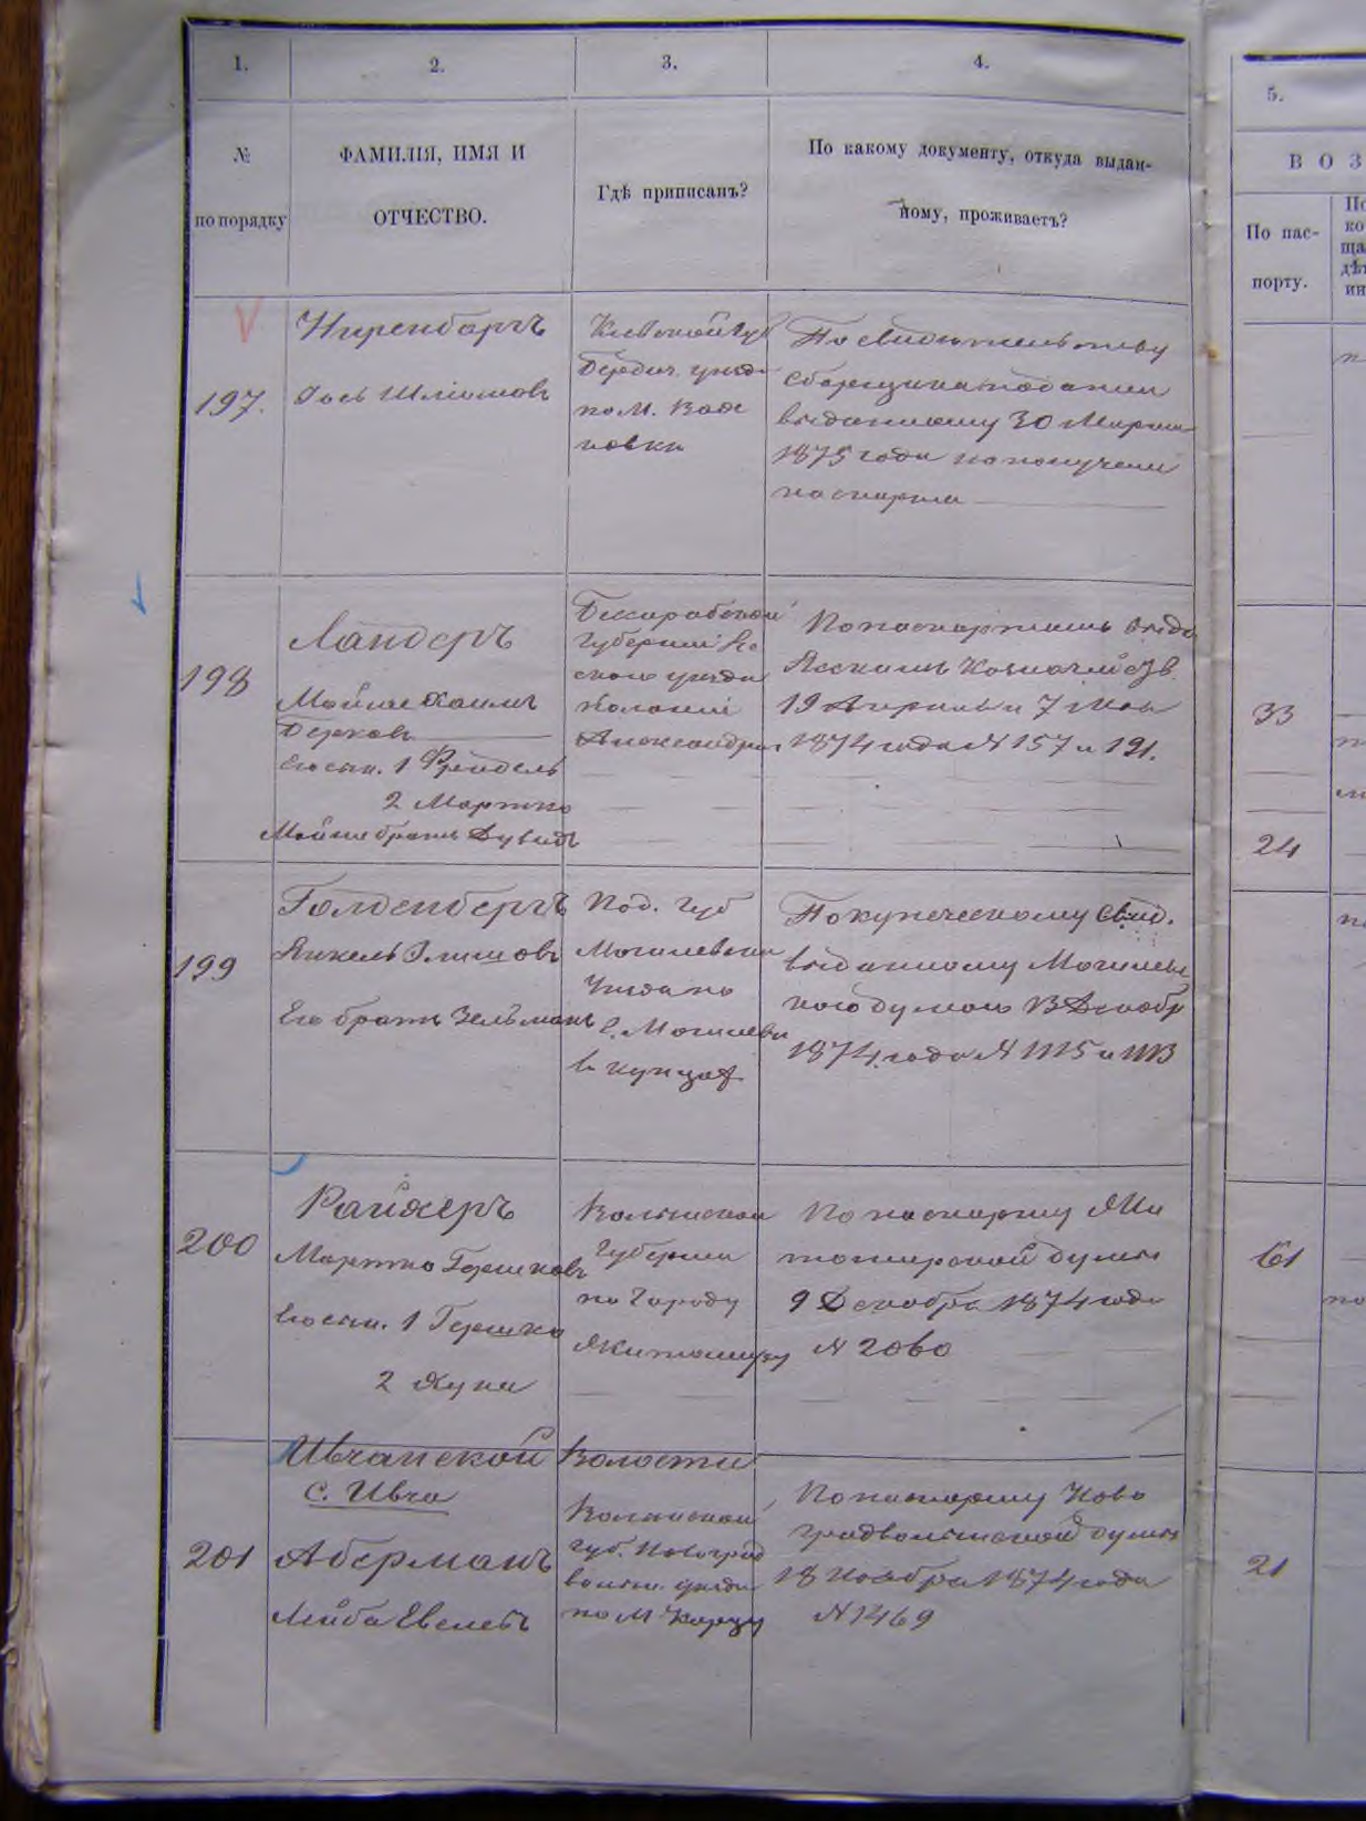 1.
2.
3.
4.
5.
№
по порядку
ФАМИЛІЯ, ИМЯ И
ОТЧЕСТВО.
Гдѣ приписанъ?
По какому документу, откуда выдан-
ному, проживаетъ?
В О З
По пас-
порту.
197.
Ниренбергъ
Іось Шліомовъ
Кіевской Губ
Бердич. уезда
по М.
новки
По свидетельству
сборщика податей
выданному 30 Марта
1875 года по получении
паспорта
198
Ландеръ
Мойше Хаимъ
Берковъ
Его сын. 1 Фрейдель
2 Мортко
Мойше братъ Дувидъ
Бессарабской
Губернии Яс
скаго уезда
Колонии
Александрен
По паспортамъ выда
Ясскимъ Казначейств.
19 Апреля и 7 Мая
1874 года № 157 и 191.
33
24
199
Голденбергъ
Янкель Элишовъ
Его братъ Зельманъ
Под. Губ
Могилевска
уезда по
г. Могилеву
въ купцах
По купеческому свид.
выданному Могилев
кою думою 13 Декабр
1874 года №
61
200
Райхеръ
Мортко Гершковъ
Его сын. 1 Гершко
2 Хуна
Волынской
Губернии
по Городу
Житомиру
По паспорту Жи
томирской думы
9 Декабря 1874 года
№ 2060
Ивчанской Волости
с. Ивча
201
Аберманъ
Лейба Евелевъ
Волынской
губ. Новоград
волын. уезда
по М Корцу
По паспорту Ново
градволынской думы
18 Ноября 1874 года
№ 1469
21